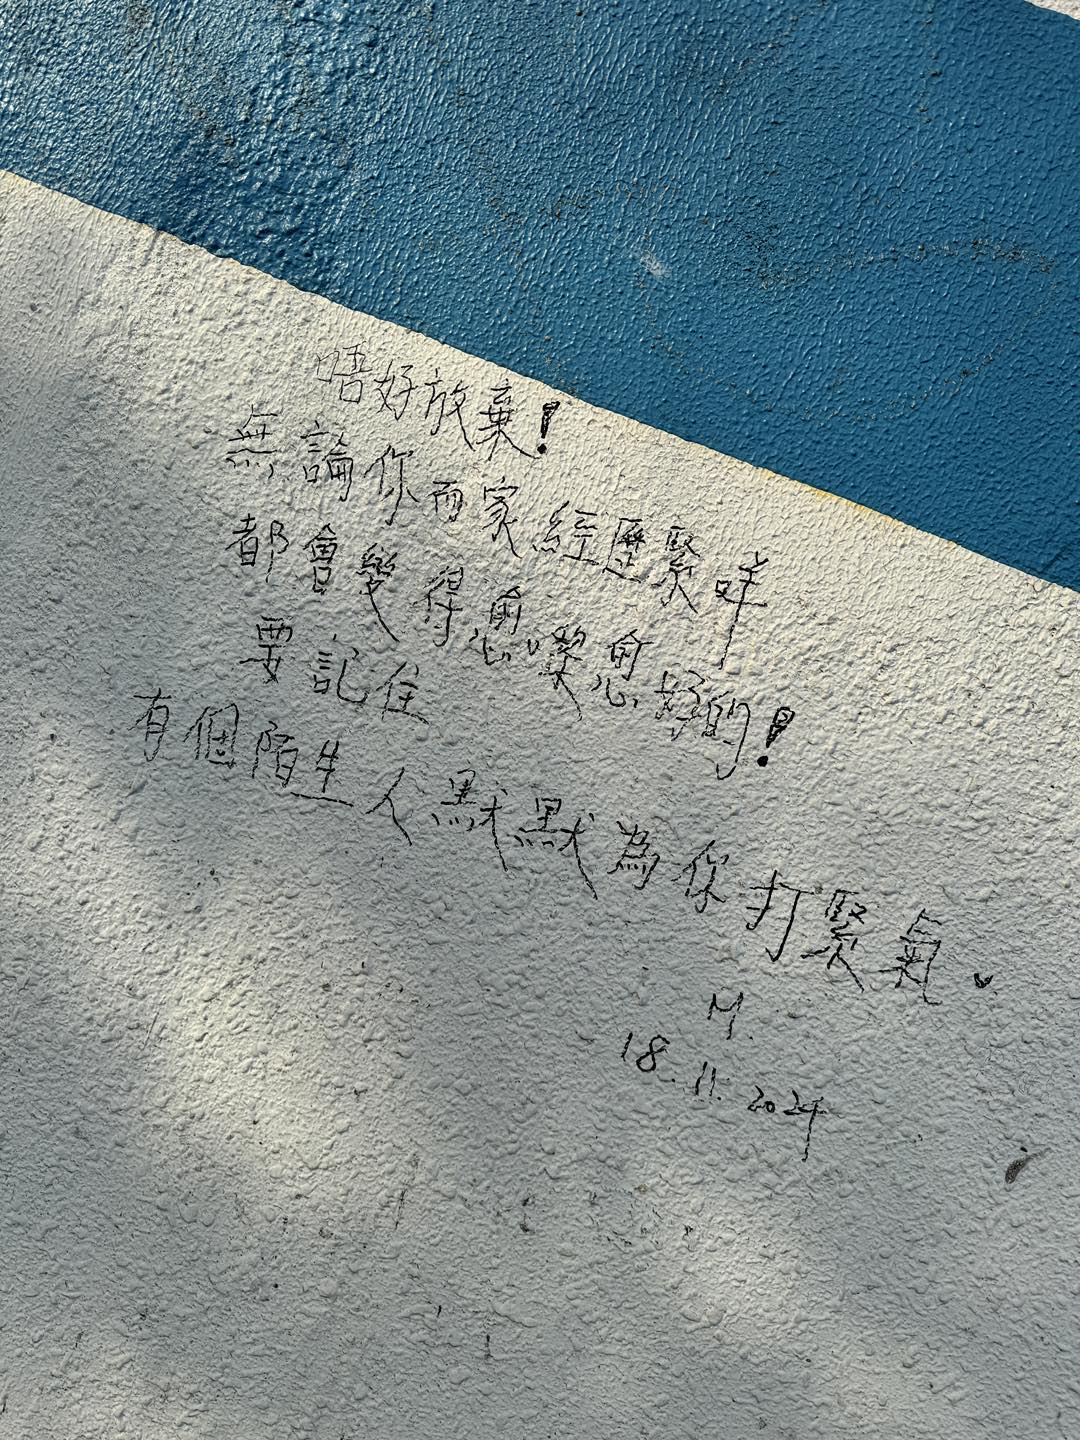 唔好放棄!
無論你而家經歷緊咩
都會變得愈嚟愈好的!
要記住
有個陌生人默默為你打緊氣。
M.
18.11.2024